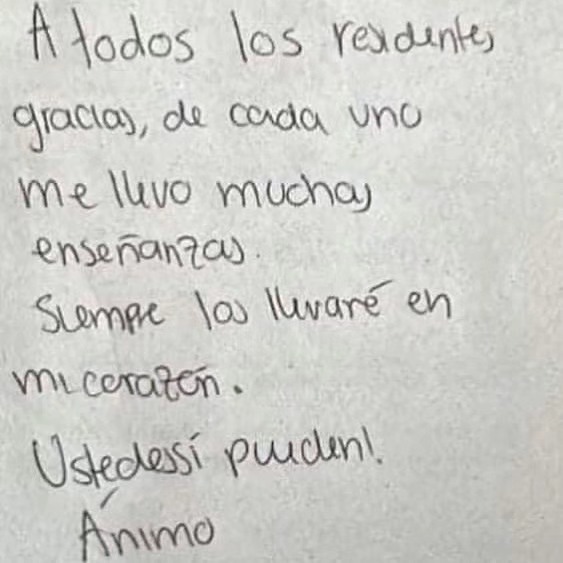 A todos los residentes
gracias, de cada uno
me llevo muchas
enseñanzas.
Siempre los llevaré en
mi corazón.
Ustedes sí pueden!
Ánimo